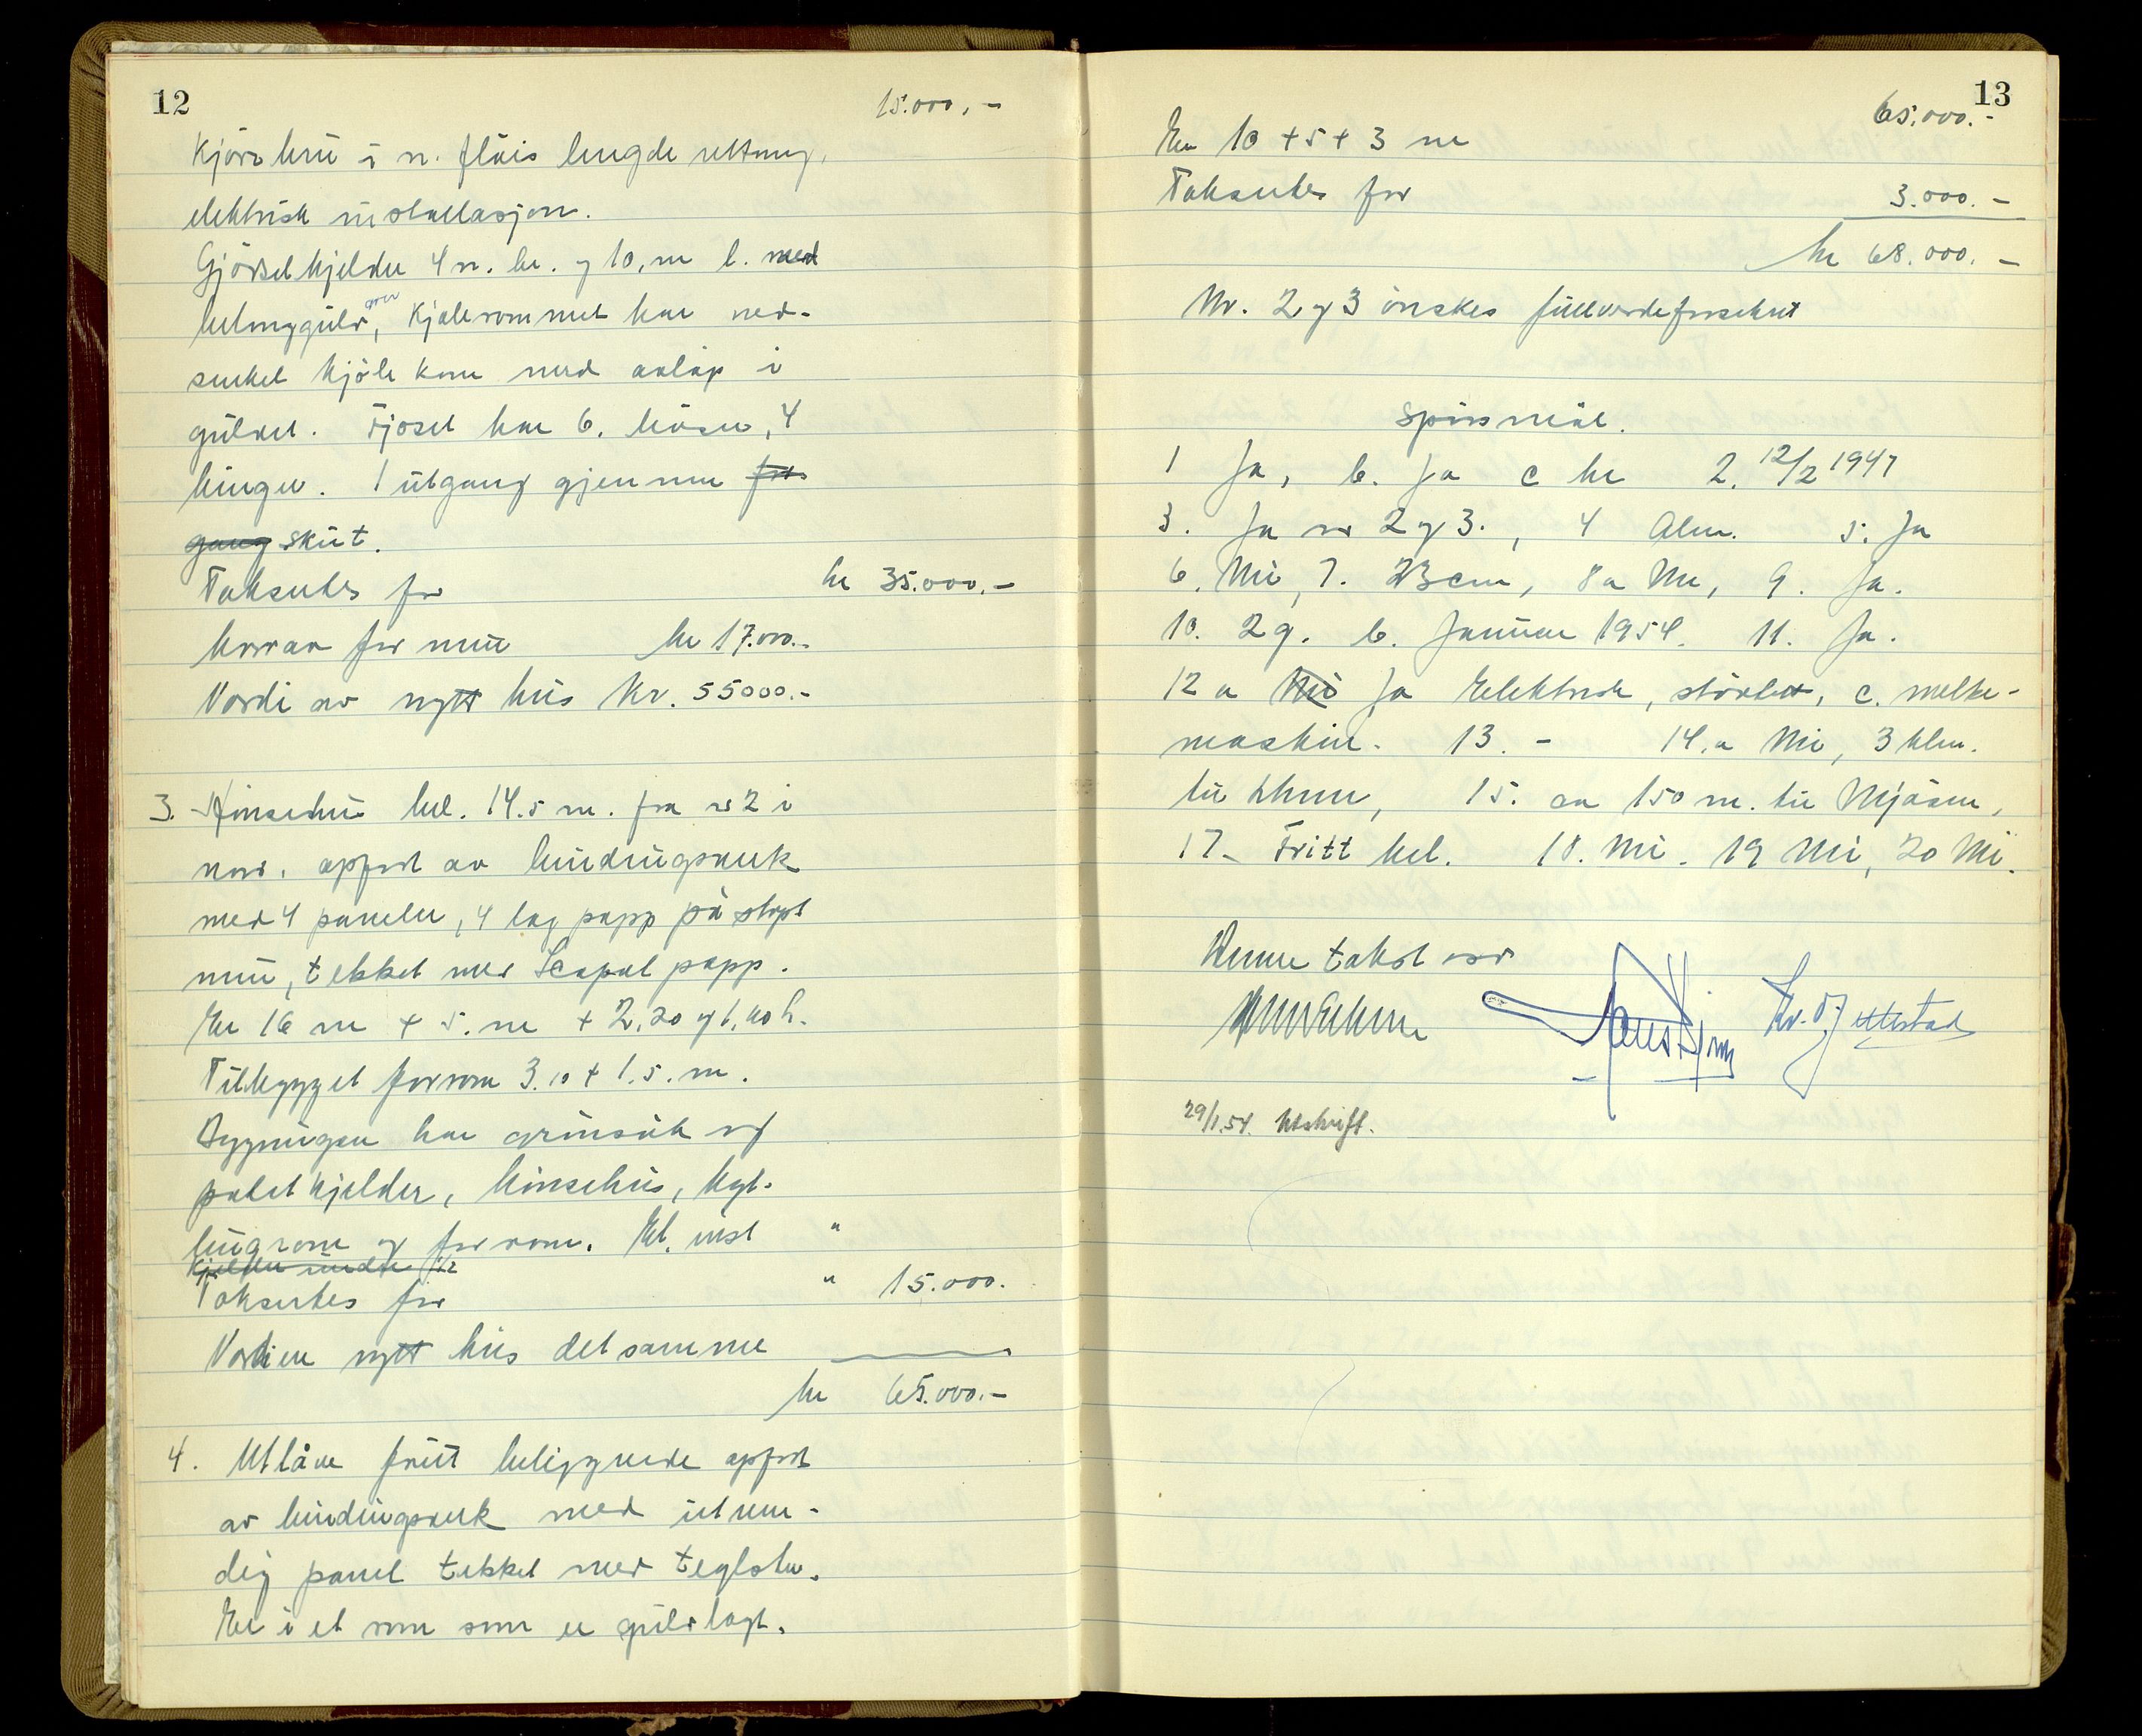 12
15.000,-
Kjörebru i n. fløis lengde retning,
elektrisk installasjon.
Gjödselkjelder 4 m. br. og 10, m l. med
betonggulv over, Kjølerommet har ned-
senket kjöle kum med avløp i
gulvet. Fjoset har 6. båser, 4
binger. 1 utgang gjennem for-
gang skut.
Takseres for kr 35.000.-
hvorav for mur kr 17.000.-
Verdi av nytt hus Kr. 55000.-
3. Hönsehus bel. 14.5 m. fra nr 2 i
nord. oppført av bindingsverk
med 4 paneler, 4 lag papp på støpt
mur, tekket med papp.
Er 16 m + 5. m + 2,20 og 1,40 h.
Tilbygget forrom 3.10 + 1.5. m.
Bygningen har grönsak og
potetkjelder, hönsehus, kyl-
lingrom og forrom. El. inst "
Kjelder under 1/2
Takseres for " 15.000.
Verdien nytt hus det samme
kr 65.000.-
4. Utlåve fritt beliggende oppført
av bindingsverk med utven-
dig panel tekket med teglsten.
Er i et rom som er gulvlagt.
13
65.000.-
Er 10 + 5 + 3 m
Takseres for 3.000.-
kr 68.000.-
Nr. 2 og 3 önskes fullverdiforsikret
Spörsmål.
1 Ja, b. Ja c kr 2. 12/2 1947
3. Ja nr 2 og 3., 4 Alm. 5. Ja
6. Nei, 7. 23 cm, 8a Nei, 9. Ja.
10. 29. b. Januar 1954. 11. Ja.
12 a Nei Ja Elektrisk, störlett, c. melke-
maskin. 13. - 14. a Nei, 3 klm.
til 15. ca 150 m. til Mjösen,
17. Fritt bel. 18. Nei. 19 Nei, 20 Nei.
Denne takst
29/1.54. Utskrift.